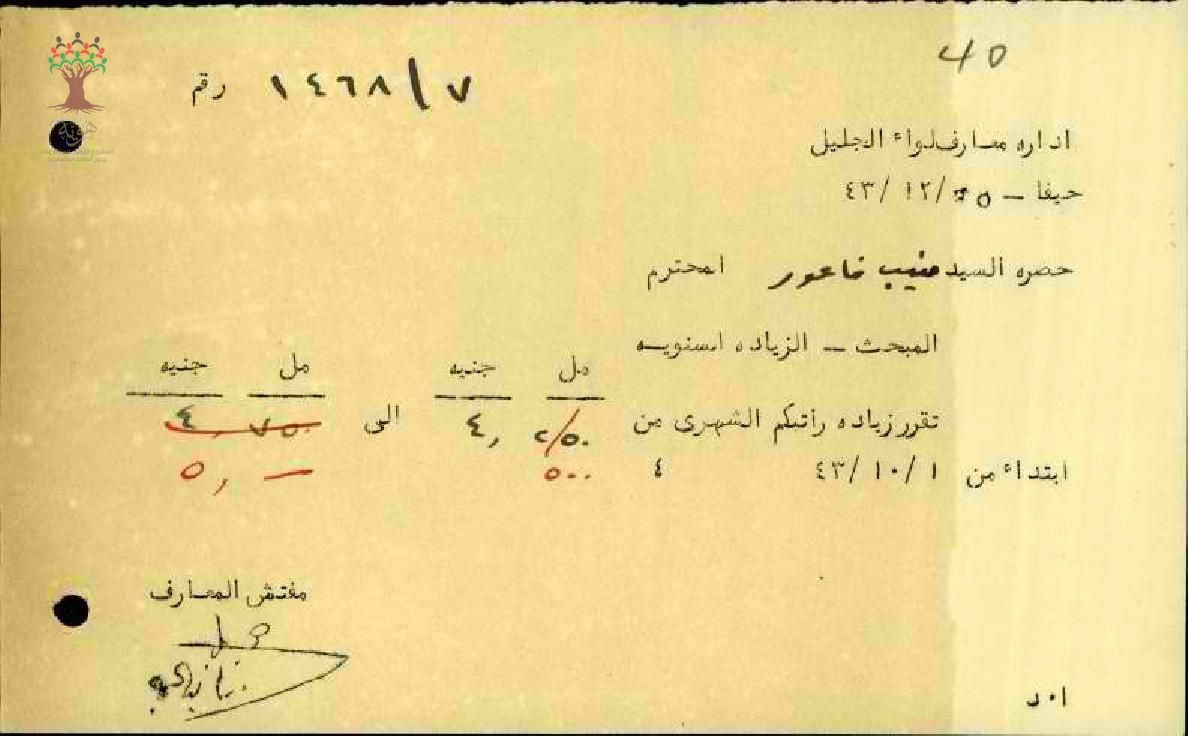 40
رقم ١٤٦٨/٧
اداره معارف لواء الجليل
حيفا – /١٢/ ٤٣
حضره السيد منيب فاعور المحترم
المبحث – الزياده السنويه
مل جنيه مل جنيه
تقرر زياده راتبكم الشهرى من ٢٥٠ ٤, الى ٧٥٠ ٤,
ابتداء من ١ /١٠/ ٤٣ ٤ ٥٠٠ — ٥,
مفتش المعارف
ا٠د
هوية